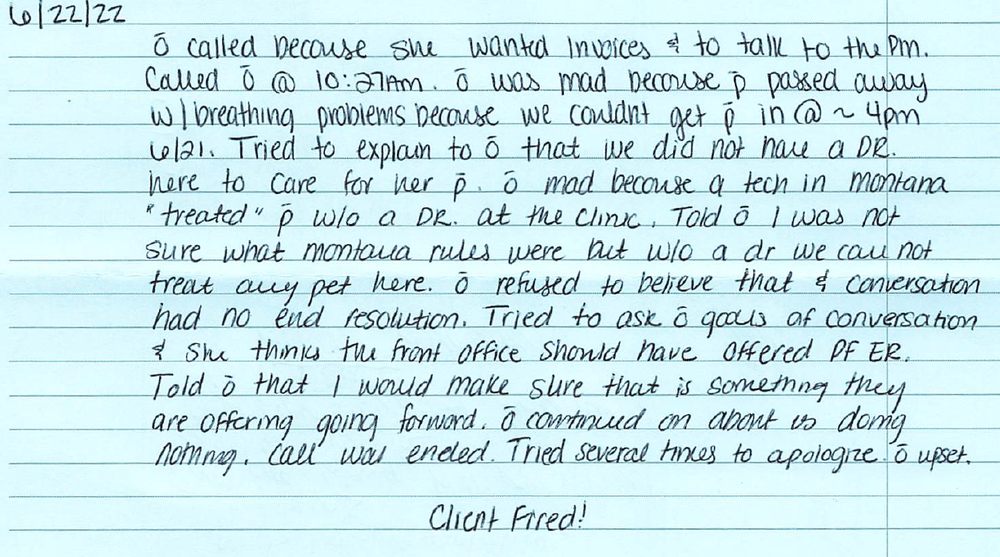 6/22/22
ō called because she wanted invoices & to talk to the PM.
Called ō @ 10:27AM. ō was mad because p̄ passed away
w/ breathing problems because we couldnt get p̄ in @ ~ 4pm
6/21. Tried to explain to ō that we did not have a DR.
here to care for her p̄. ō mad because a tech in montana
"treated" p̄ w/o a DR. at the clinic. Told ō I was not
sure what montana rules were but w/o a dr we can not
treat any pet here. ō refused to believe that & conversation
had no end resolution. Tried to ask ō goals of conversation
& she thinks the front office should have offered PF ER.
Told ō that I would make sure that is something they
are offering going forward. ō continued on about us doing
nothing. Call was ended. Tried several times to apologize. ō upset.
Client Fired!